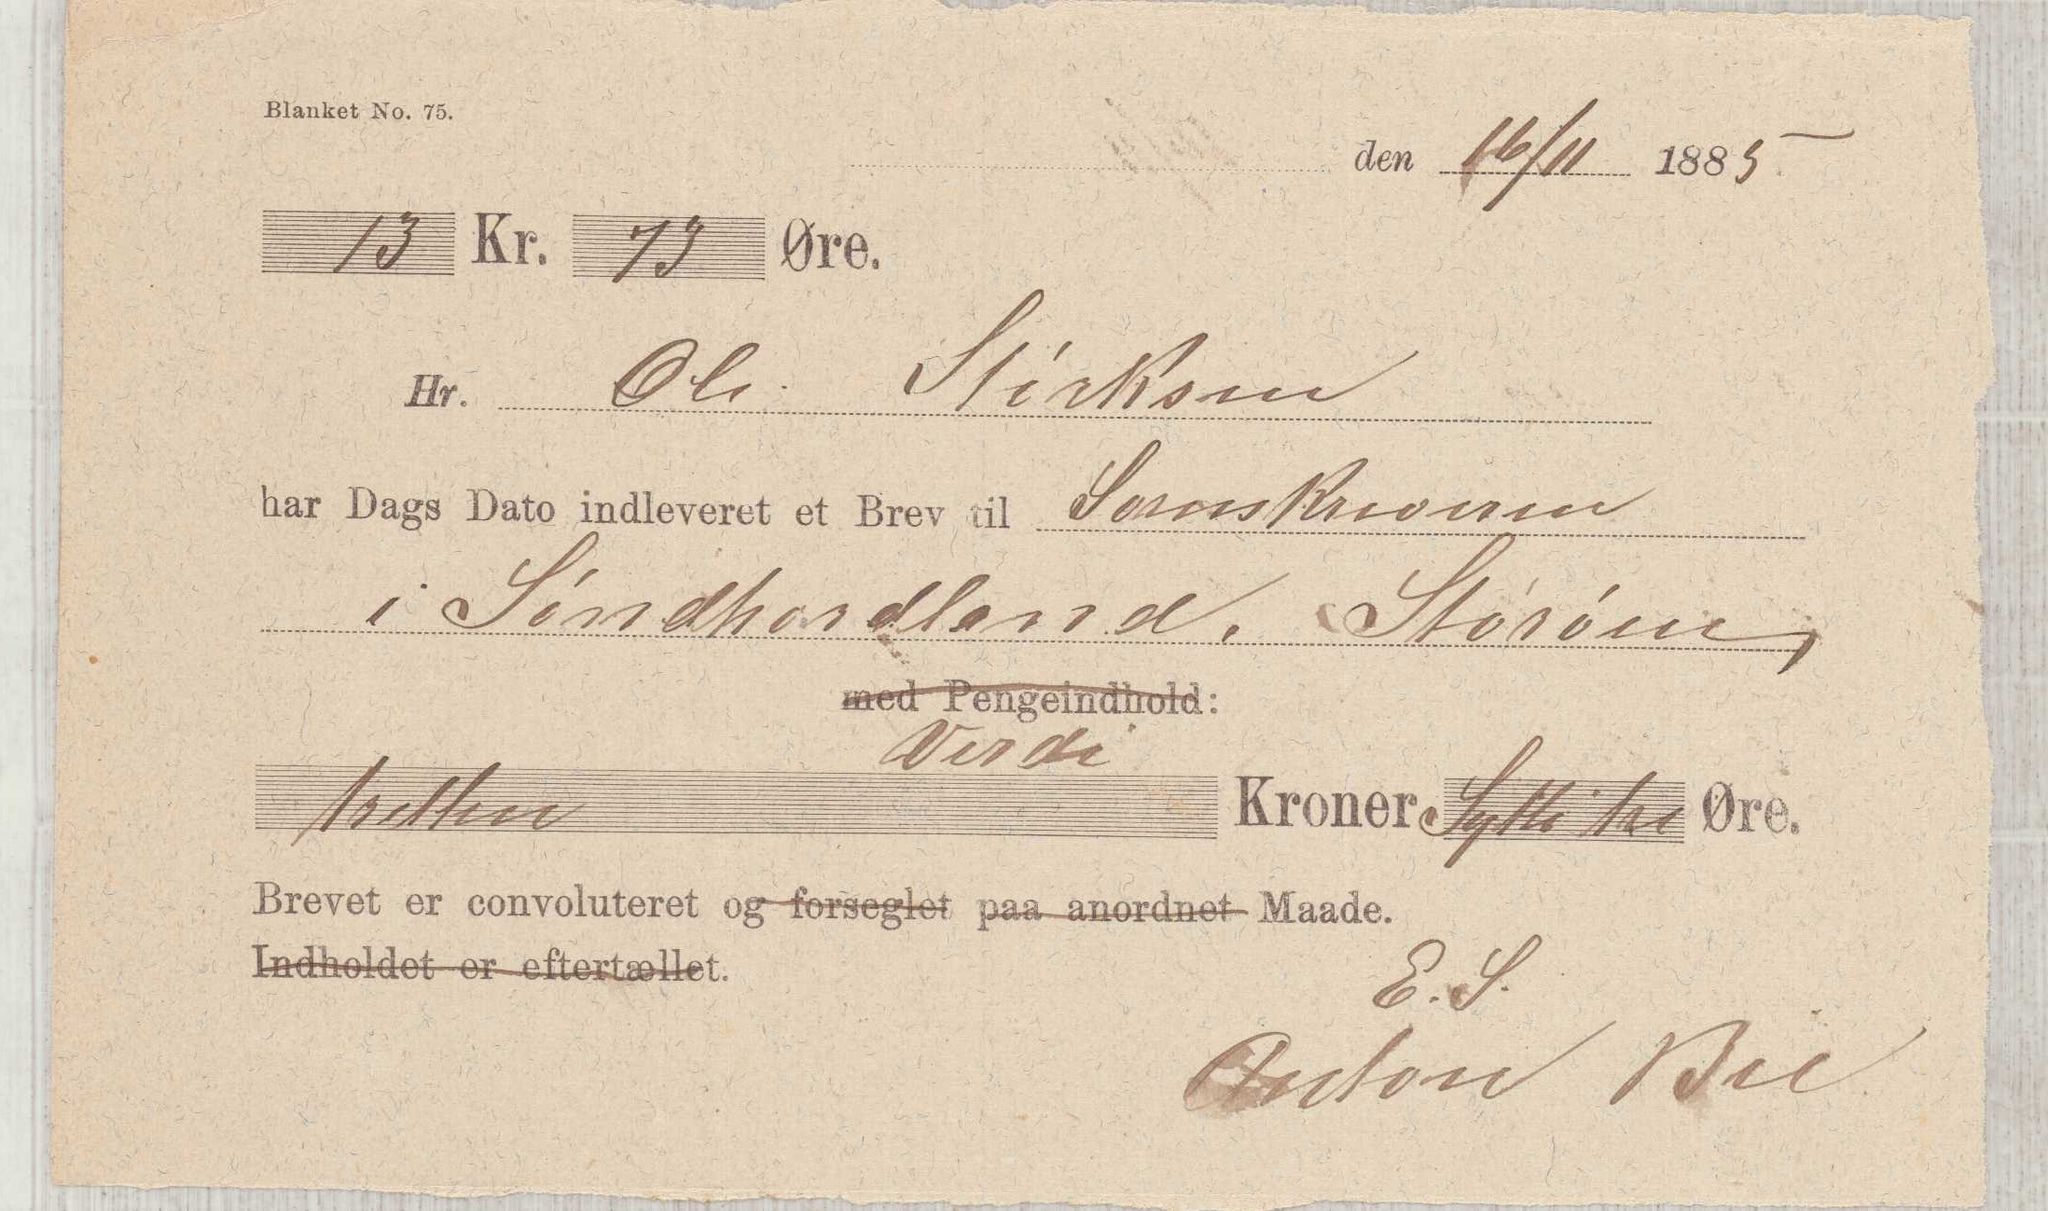 Blanket No. 75.
den 16/11 1885
13 Kr. 73 Øre.
Hr. Ole
har Dags Dato indleveret et Brev til Sorenskriveren
i Søndhordland, Størøen,
med Pengeindhold:
Verdi
tretten Kroner Sytti tre Øre.
Brevet er convoluteret og forseglet paa anordnet Maade.
Indholdet er eftertællet.
E. S.
Anton Bie